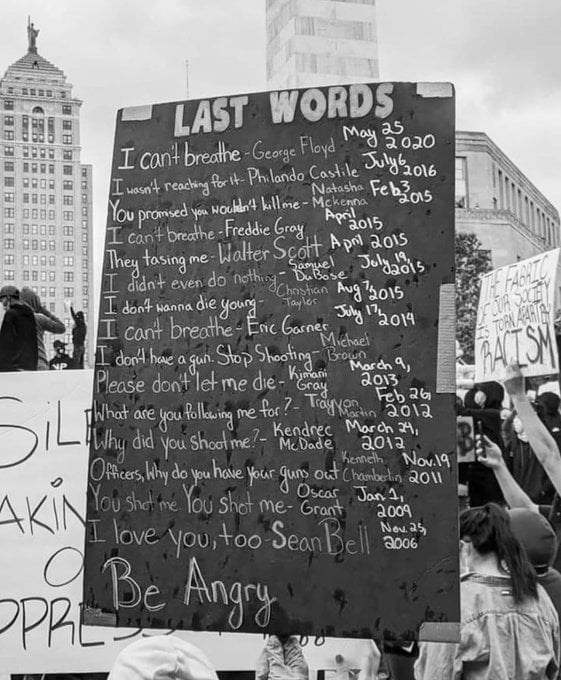 LAST WORDS
I can't breathe - George Floyd May 25 2020
I wasn't reaching for it - Philando Castile July 6 2016
You promised you wouldn't kill me - Natasha Mckenna Feb 3 2015
I can't breathe - Freddie Gray April 2015
They tasing me - Walter Scott April 2015
I didn't even do nothing - Samuel DuBose July 19, 2015
I don't wanna die young - Christian Taylor Aug 7, 2015
I can't breathe - Eric Garner July 17, 2014
I don't have a gun. Stop Shooting - Michael Brown
Please don't let me die - Kimani Gray March 9, 2013
What are you following me for? - Trayvon Martin Feb 26, 2012
Why did you shoot me? - Kendrec McDade March 24, 2012
Officers, Why do you have your guns out Kenneth Chamberlin Nov. 19, 2011
You shot me You shot me - Oscar Grant Jan. 1, 2009
I love you, too - Sean Bell Nov. 25, 2006
Be Angry
THE FABRIC
OF OUR SOCIETY
IS TORN APART BY
RACISM
SIL
AKIN
O
PPRESS